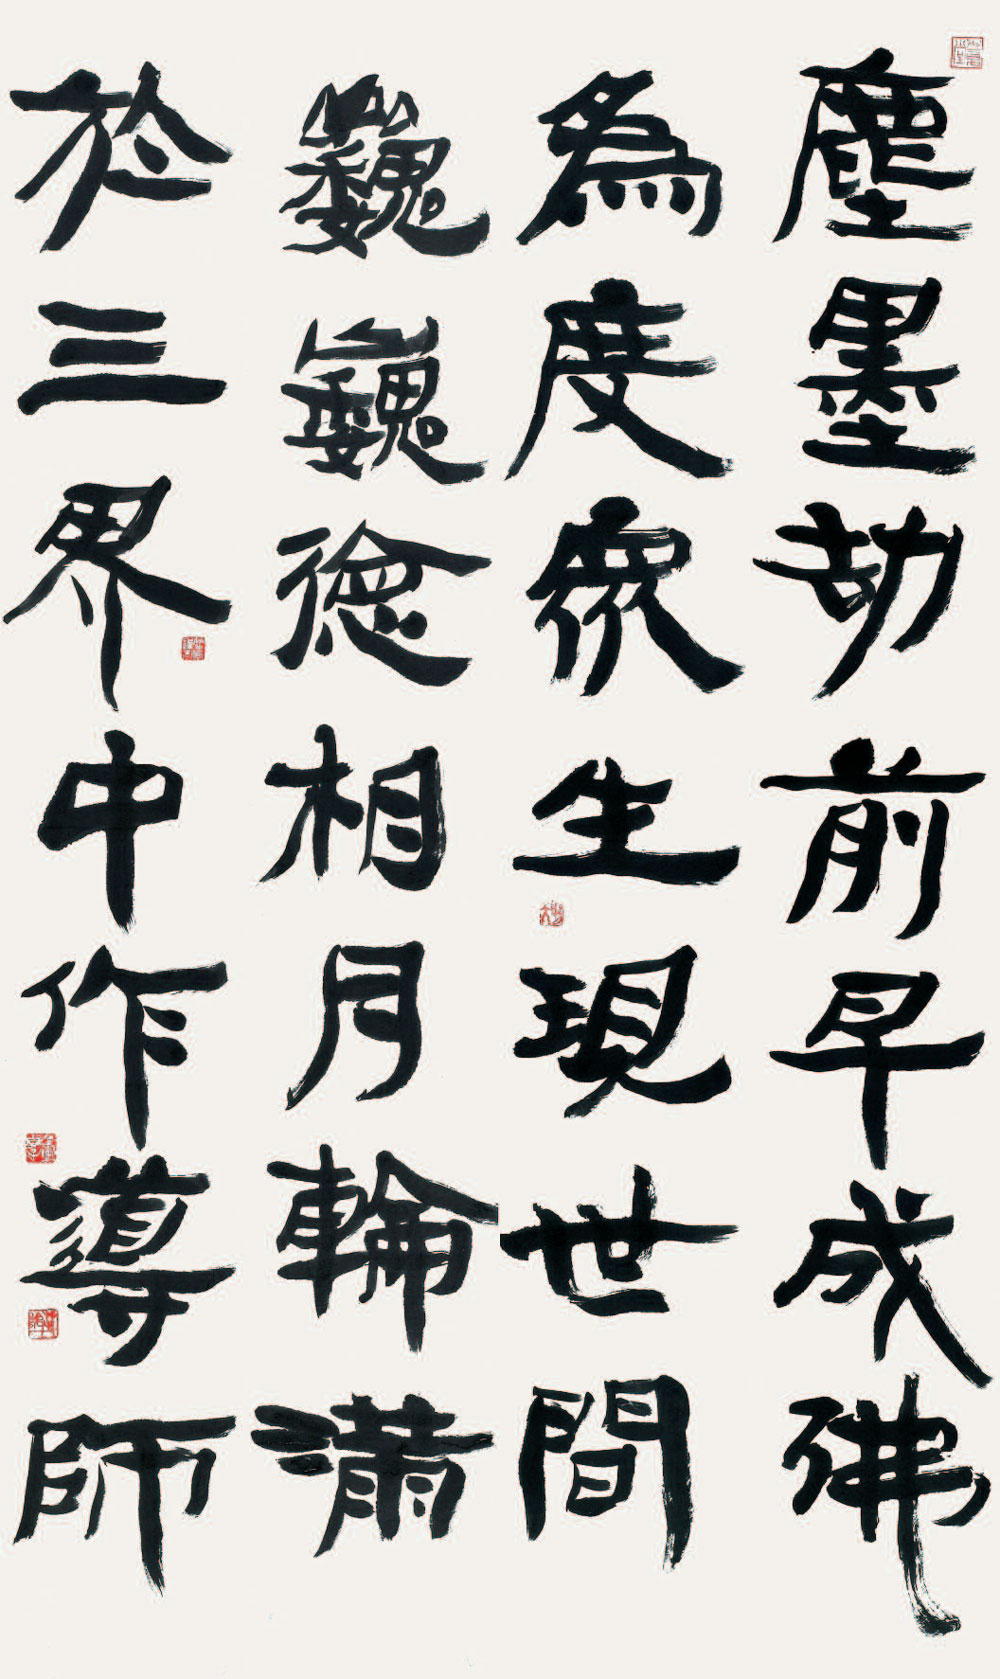 塵墨劫前早成佛
為度衆生現世間
巍巍德相月輪滿
於三界中作導師